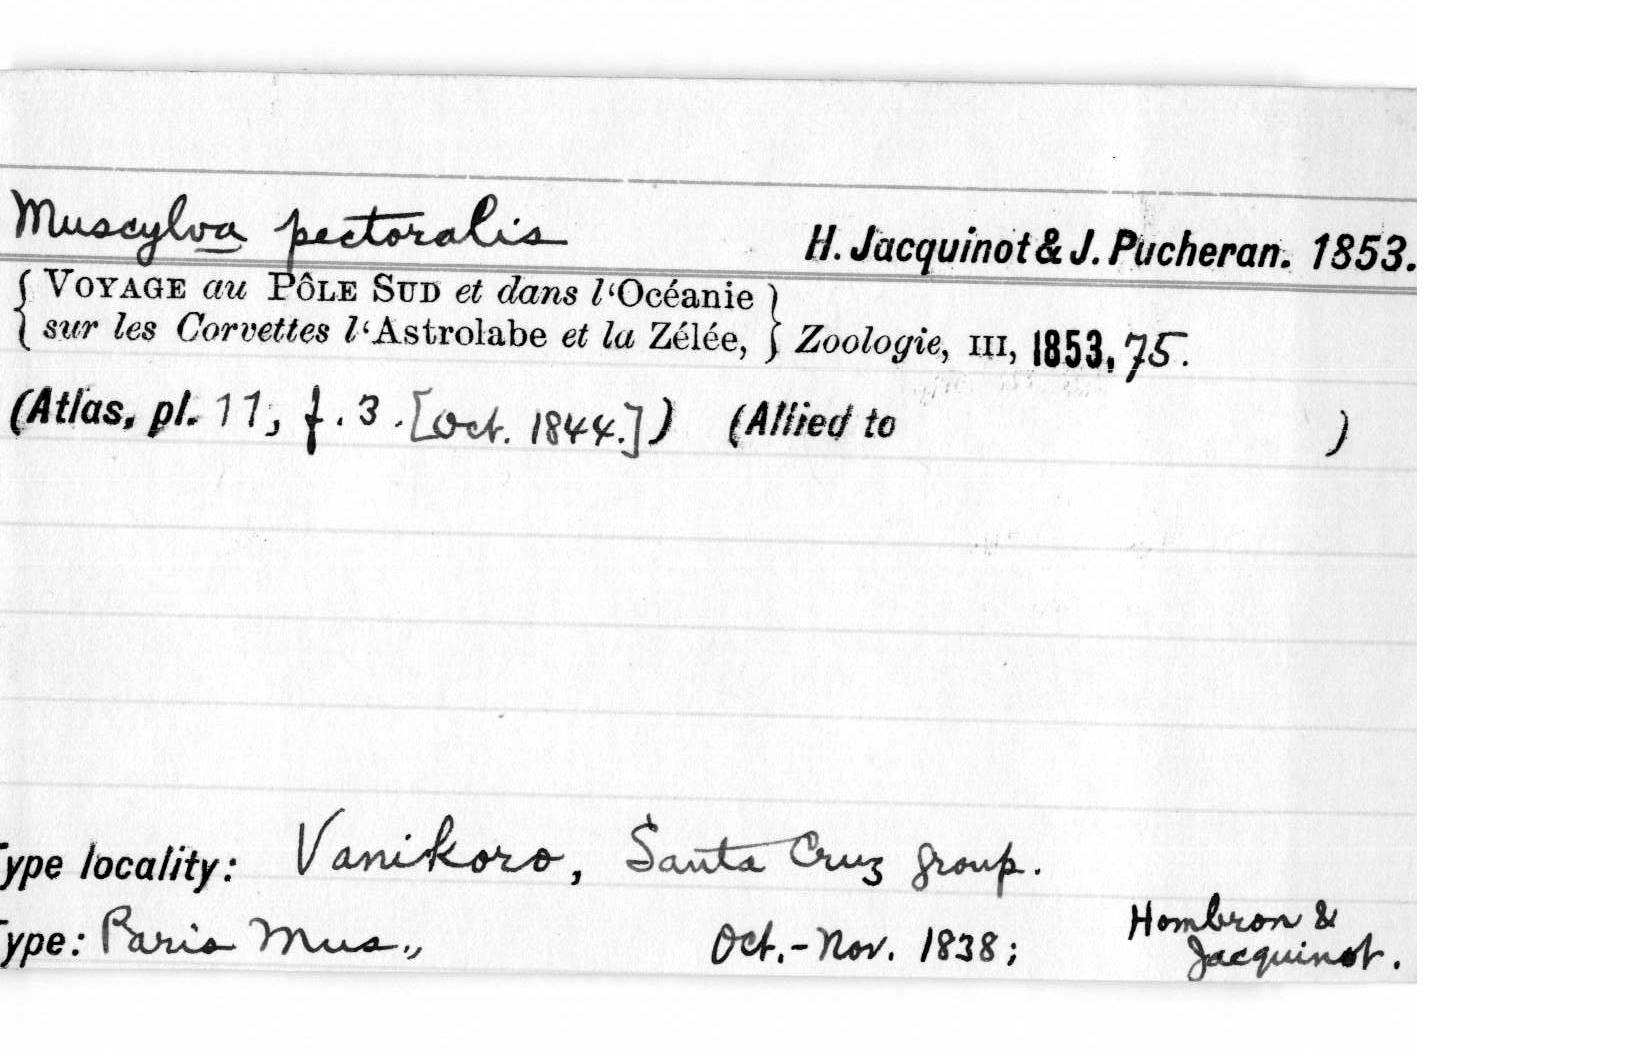 Muscylva pectoralis H. Jacquinot & J. Pucheran. 1853.
{ VOYAGE au PÔLE SUD et dans l‘Océanie }
{ sur les Corvettes l‘Astrolabe et la Zélée, } Zoologie, III, 1853, 75.
(Atlas, pl. 11, f. 3. [Oct. 1844.]) (Allied to )
Type locality: Vanikoro, Santa Cruz group.
Type: Paris Mus., Oct.-Nov. 1838; Hombron &
Jacquinot.